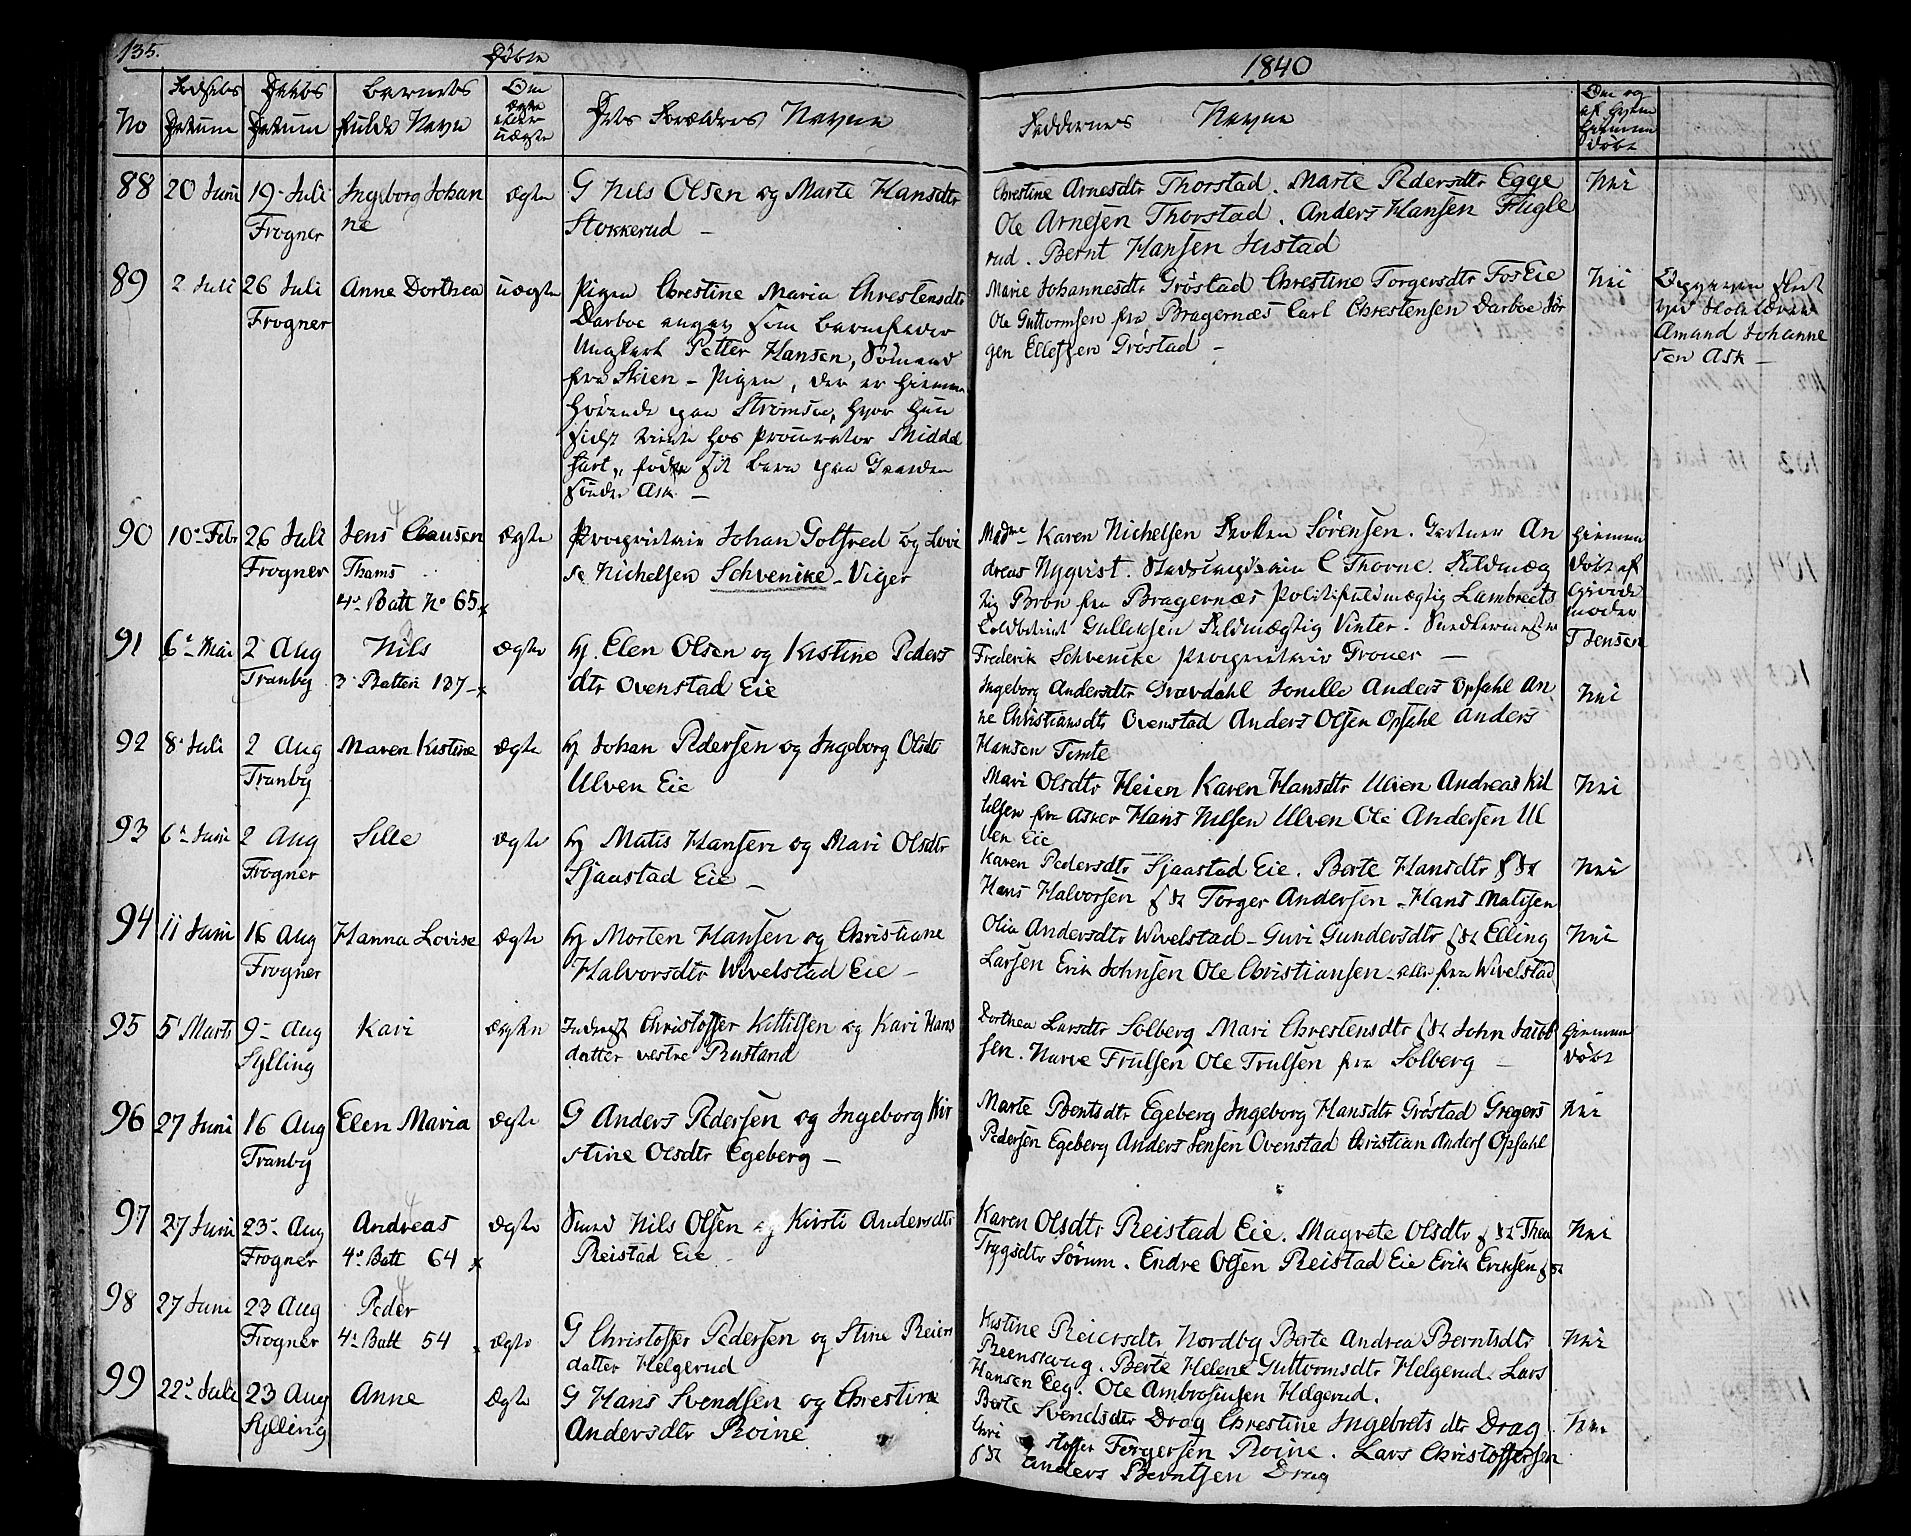 135.
Døbte
1840
No
Fødsels
Datum
Daabs
Datum
Barnets
fulde Navn
Om
ægte
eller
uægte
Dets Forældres Navne
Faddernes Navne
Om og
af hvem
hiemme
døbt
88 20 Juni 19 Juli Ingeborg Johan ægte G Nils Olsen og Marte Hansdtr
Frogner ne Stokkerud –
Chrestine Arnesdtr Thorstad. Marte Pedersdtr Egge Nei
Ole Arnesen Thorstad. Anders Hansen Flugle
rud. Bernt Hansen Justad
89 2 Juli 26 Juli Anne Dorthea uægte Pigen Chrestine Maria Chrestensdtr
Frogner Darboe angav som barnefader
Ungkarl Petter Hansen, Sømand
fra Skien – Pigen, der er hiemme
hørende paa Strømsøe, hvor hun
sidst tiente hos Procurator Midde
fart, fødte sit barn paa Gaarden
søndre Ask –
Marie Johannesdtr Gröstad Chrestine Torgersdtr Fos Eie Nei
Ole Guttormsen fra Bragernæs Carl Chrestensen Darboe Jør
gen Ellefsen Gröstad –
ved Skolelærer
Amand Johanne
sen Ask –
90 10 Febr 26 Juli Jens Clausen ægte Proprietair Johan Gotfred og Lovi
Frogner Thams se Nichelsen Schvenike – Viger
4 Batt No 65 x
Madme Karen Nichelsen Frøken Sørensen. Gartner An hiemme
dreas Nyqvist. C Thorne. Fuldmæg døbt af
tig Brøn fra Bragernæs Politifuldmægtig Lambrects
Gulliksen Fuldmægtig Vinter. moder
Frederik Schvenike Proprietair Groner – T Jensen
91 6 Mai 2 Aug Nils ægte hj. Elen Olsen og Kistine Peders
Tranby 3 Batteri 137 – x dtr Ovenstad Eie
Ingeborg Andersdtr Gravdahl Jonille Anders Opsahl An Nei
ne Christiansdtr Ovenstad Anders Olsen Opsahl Anders
Hansen Temte
92 8 Juli 2 Aug Maren Kistine ægte hj Johan Pedersen og Ingeborg Olsdtr
Tranby Ulven Eie
Mari Olsdtr Heien Karen Hansdtr Ulven Andreas Kit Nei
telsen fra Asker Hans Nilsen Ulven Ole Andersen Ul
ven Eie
93 6 Juni 2 Aug Sille ægte hj Matis Hansen og Mari Olsdtr
Frogner Sjaastad Eie –
Karen Pedersdtr Sjaastad Eie. Berte Hansdtr Nei
Hans Halvorsen Torger Andersen – Hans Matisen
94 11 Juni 16 Aug Hanna Lovise ægte hj Morten Hansen og Christiane
Frogner Halvorsdtr Wivelstad Eie –
Olia Andersdtr Wivelstad – Guri Gundersdtr Elling Nei
Larsen Erik Johnsen Ole Christiansen – alle fra Wivelstad
95 5 Marts 9 Aug Kari ægten Inderst Christoffer Kittilsen og Kari Hans
Sylling datter vestre Rustand
Dorthea Larsdtr Solberg Mari Chrestensdtr John Jacob hiemme
sen. Narve Trulsen Ole Trulsen fra Solberg – døbt
96 27 Juni 16 Aug Elen Maria ægte G Anders Pedersen og Ingeborg Kir
Tranby stine Olsdtr Egeberg –
Marte Berntsdtr Egeberg Ingeborg Hansdtr Gröstad Gregers Nei
Pedersen Egeberg Anders Jensen Ovenstad Christian Anders Opsahl
97 27 Juni 23 Aug Andreas ægte Smed Nils Olsen og Kirsti Andersdtr
Frogner 4 Batt 64 x Reistad Eie –
Karen Olsdtr Reistad Eie. Magrete Olsdtr Thea Nei
Trygsdtr Sørum. Endre Olsen Reistad Eie Erik Eriksen
98 27 Juni 23 Aug Peder
Frogner 4 Batt 54 ægte G Christoffer Pedersen og Stine Reiers
datter Helgerud
Kistine Reiersdtr Nordby Berte Andrea Berntsdtr Nei
Reenskoug. Berte Helene Guttormsdtr Helgerud. Lars
Hansen Eeg. Ole Ambrosiusen Helgerud.
99 22 Juli 23 Aug Anne ægte G Hans Svendsen og Chrestine
Sylling Andersdtr Roine
Berte Svendsdtr Drag Chrestine Ingebrets dtr Drag Nei
Chri stoffer Torgersen Roine. Lars Christoffersen
Anders Berntsen Drag